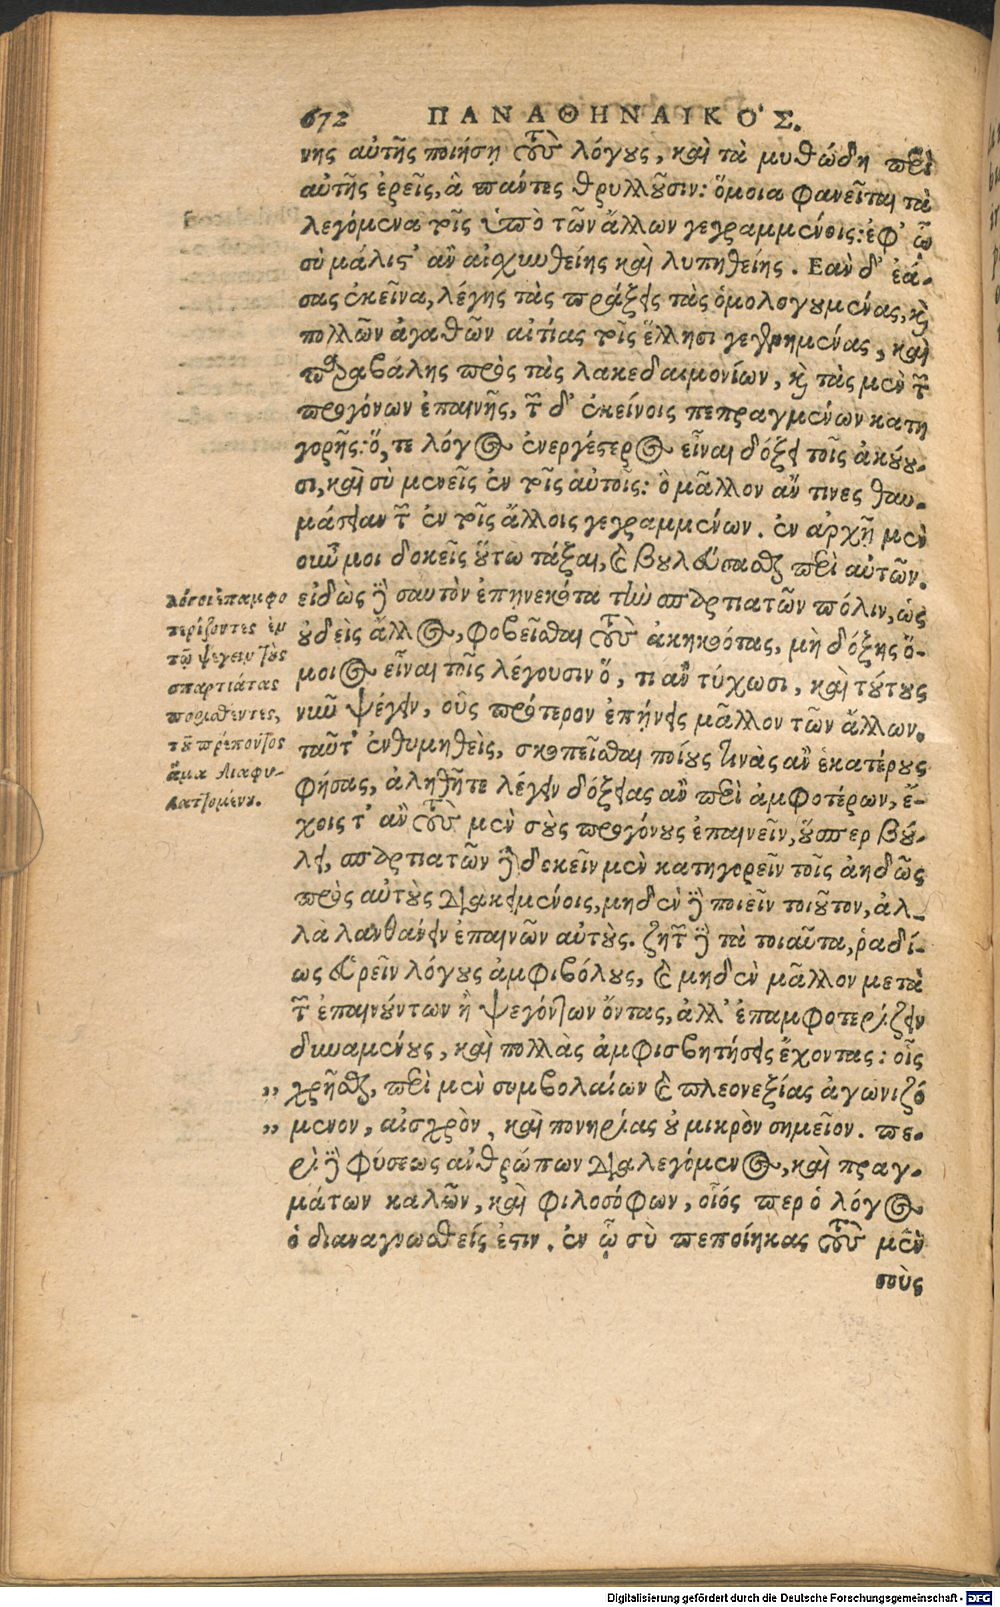 672 ΠΑΝΑΘΗΝΑΙΚΟ'Σ.
νης αὐτῆς ποιήσῃ τοὺς λόγους, καὶ τὰ μυθώδη περὶ
αὐτῆς ἐρεῖς, ἃ πάντες θρυλλοῦσιν: ὅμοια φανεῖται τὰ
λεγόμενα τοῖς ὑπὸ τῶν ἄλλων γεγραμμένοις: ἐφ' ᾧ
σὺ μάλιστ' ἂν αἰσχυνθείης καὶ λυπηθείης. Εὰν δ' ἐά-
σας ἐκεῖνα, λέγῃς τὰς πράξεις τὰς ὁμολογουμένας, καὶ
πολλῶν ἀγαθῶν αἰτίας τοῖς ἕλλησι γεγενημένας, καὶ
παραβάλῃς πρὸς τὰς λακεδαιμονίων, καὶ τὰς μὲν τῶν
προγόνων ἐπαινῇς, τῶν δ' ἐκείνοις πεπραγμένων κατη
γορῇς: ὅ, τε λόγος ἐνεργέστερος εἶναι δόξει τοῖς ἀκούου-
σι, καὶ σὺ μενεῖς ἐν τοῖς αὐτοῖς: ὃ μᾶλλον ἄν τινες θαυ-
μάσειαν τῶν ἐν τοῖς ἄλλοις γεγραμμένων. ἐν ἀρχῇ μὲν
οὖν μοι δοκεῖς οὕτω τάξαι, καὶ βουλεύσασθαι περὶ αὐτῶν.
εἰδὼς δὲ σαυτὸν ἐπῃνεκότα τὴν σπαρτιατῶν πόλιν, ὡς
οὐδεὶς ἄλλος, φοβεῖσθαι τοὺς ἀκηκοότας, μὴ δόξῃς ὅ-
μοιος εἶναι τοῖς λέγουσιν ὅ, τι ἂν τύχωσι, καὶ τούτους
νῦν ψέγειν, οὓς πρότερον ἐπῄνεις μᾶλλον τῶν ἄλλων.
ταῦτ' ἐνθυμηθεὶς, σκοπεῖσθαι ποίους τινὰς ἂν ἑκατέρους
φήσας, ἀληθῆ τε λέγειν δόξειας ἂν περὶ ἀμφοτέρων, ἔ-
χοις τ' ἂν τοὺς μὲν σοὺς προγόνους ἐπαινεῖν, οὕσπερ βού-
λει, σπαρτιατῶν δὲ δοκεῖν μὲν κατηγορεῖν τοῖς ἀηδῶς
πρὸς αὐτοὺς διακειμένοις, μηδὲν δὲ ποιεῖν τοιοῦτον, ἀλ-
λὰ λανθάνειν ἐπαινῶν αὐτούς. ζητῶν δὲ τὰ τοιαῦτα, ῥαδί-
ως εὑρεῖν λόγους ἀμφιβόλους, καὶ μηδὲν μᾶλλον μετὰ
τῶν ἐπαινούντων ἢ ψεγόντων ὄντας, ἀλλ' ἐπαμφοτερίζειν
δυναμένους, καὶ πολλὰς ἀμφισβητήσεις ἔχοντας: οἷς
„ χρῆσθαι, περὶ μὲν συμβολαίων καὶ πλεονεξίας ἀγωνιζό
„ μενον, αἰσχρὸν, καὶ πονηρίας οὐ μικρὸν σημεῖον. πε-
ρὶ δὲ φύσεως ἀνθρώπων διαλεγόμενος, καὶ πραγ-
μάτων καλῶν, καὶ φιλοσόφων, οἷός περ ὁ λόγος
ὁ διαναγνωσθείς ἐστιν. ἐν ᾧ σὺ πεποίηκας τοὺς μὲν
σοὺς
λόγοι ἐπαμφο
τερίζοντες ἐμ
τῷ ψέγειν τοὺς
σπαρτιάτας
ποριαθέντες,
τοῦ πρέποντος
ἅμα διαφυ-
λαττομένου.
Digitalisierung gefördert durch die Deutsche Forschungsgemeinschaft - DFG